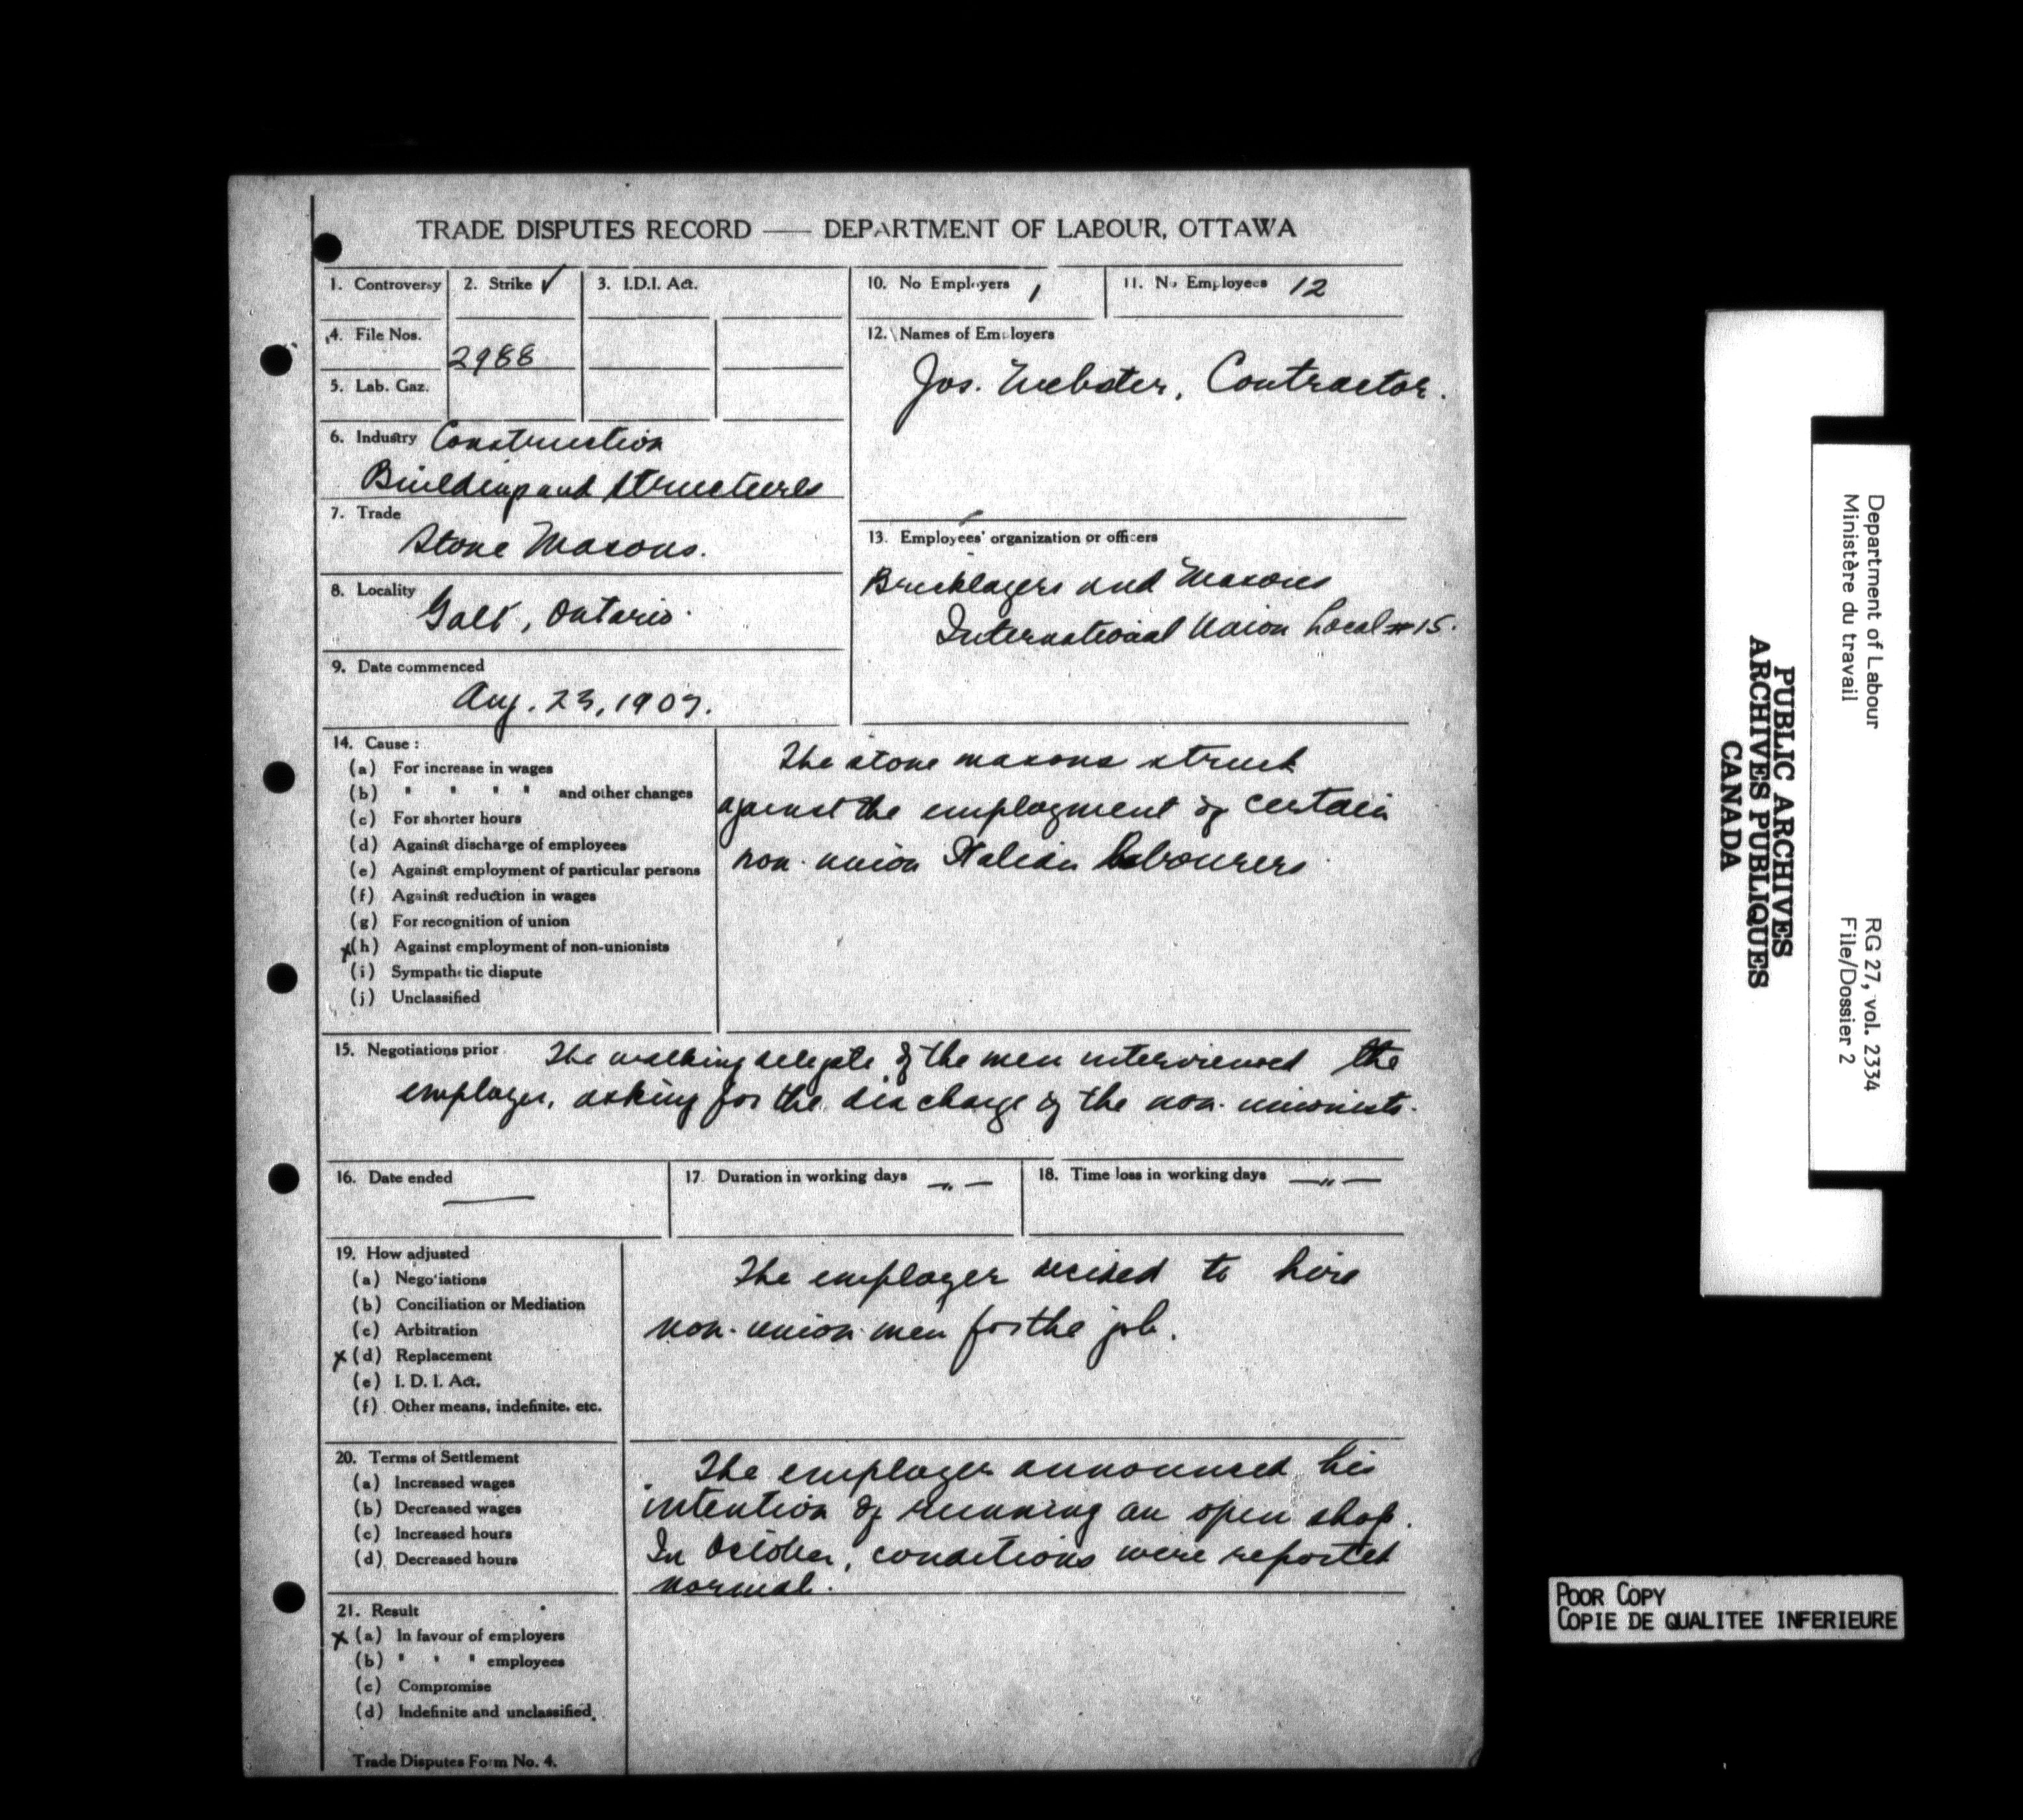 TRADE DISPUTES RECORD — DEPARTMENT OF LABOUR, OTTAWA
1. Controversy
2. Strike ✓
3. I.D.I. Act.
4. File Nos.
2988
5. Lab. Gaz.
6. Industry Construction
Buildings and structures
7. Trade
Stone Masons.
8. Locality
Galt, Ontario.
9. Date commenced
Aug. 23, 1907.
10. No Employers 1
11. No Employees 12
12. Names of Employers
Jos. Webster, Contractor.
13. Employees' organization or officers
Bricklayers and Masons
International Union Local #15.
14. Cause :
(a) For increase in wages
(b) " " " " and other changes
(c) For shorter hours
(d) Against discharge of employees
(e) Against employment of particular persons
(f) Against reduction in wages
(g) For recognition of union
x (h) Against employment of non-unionists
(i) Sympathetic dispute
(j) Unclassified
The stone masons struck
against the employment of certain
non-union Italian labourers
15. Negotiations prior The walking delegate of the men interviewed the
employer, asking for the discharge of the non-unionists.
16. Date ended —
17. Duration in working days —"—
18. Time loss in working days —"—
19. How adjusted
(a) Negotiations
(b) Conciliation or Mediation
(c) Arbitration
x (d) Replacement
(e) I. D. I. Act.
(f) Other means, indefinite, etc.
The employer decided to hire
non-union men for the job.
20. Terms of Settlement
(a) Increased wages
(b) Decreased wages
(c) Increased hours
(d) Decreased hours
The employer announced his
intention of running an open shop.
In October, conditions were reported
normal.
21. Result
x (a) In favour of employers
(b) " " " employees
(c) Compromise
(d) Indefinite and unclassified.
Trade Disputes Form No. 4.
PUBLIC ARCHIVES
ARCHIVES PUBLIQUES
CANADA
Department of Labour
Ministère du travail
RG 27, vol. 2334
File/Dossier 2
POOR COPY
COPIE DE QUALITEE INFERIEURE